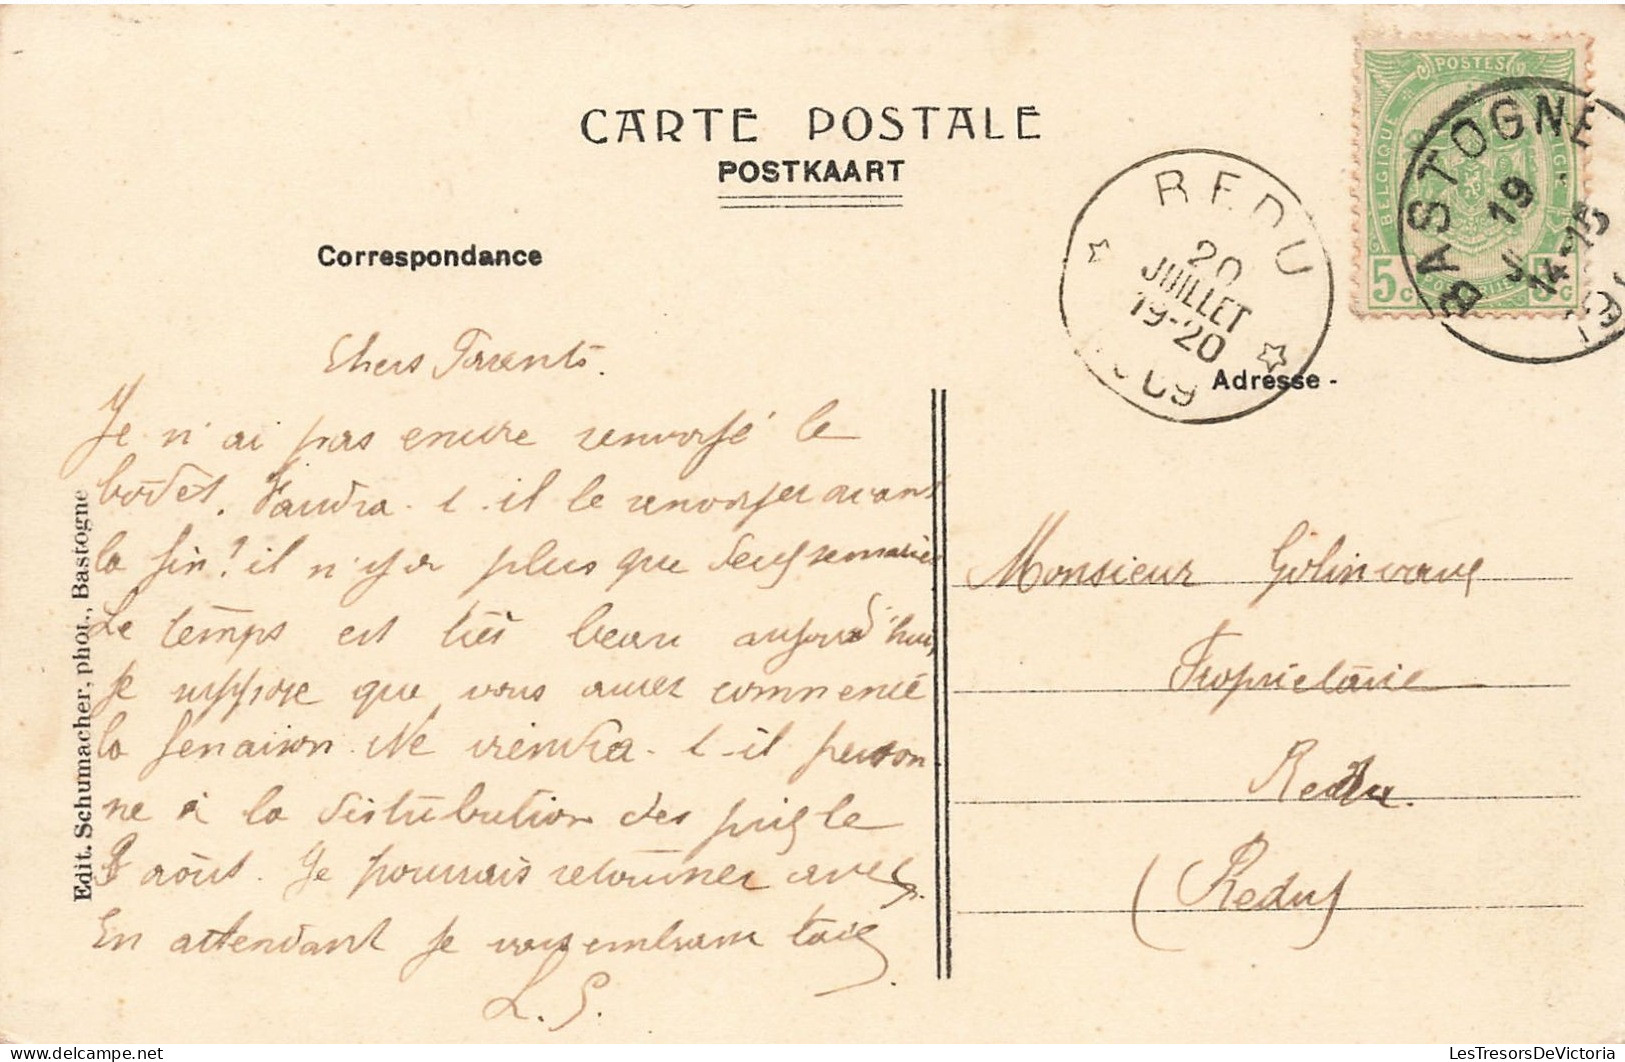 CARTE POSTALE
POSTKAART
Correspondance
Adresse -
POSTES
BELGIQUE
5 c 5 c
BASTOGNE
19
14-15
REDU
20
JUILLET
19-20
Chers Parents.
Je n'ai pas encore renvoyé le
bodet. Faudra-t-il le renvoyer avant
la fin? il n'y a plus que deux semaines
Le temps est très beau aujourd'hui,
je suppose que vous avez commencé
la fenaison. Ne viendra-t-il person
ne à la distribution des prix le
août. Je pourrais retourner avec.
En attendant je vous embrasse tous
L. S.
Monsieur Golinvaux
Propriétaire
Redu.
(Redu)
Edit. Schumacher, phot., Bastogne
delcampe.net
LesTresorsDeVictoria